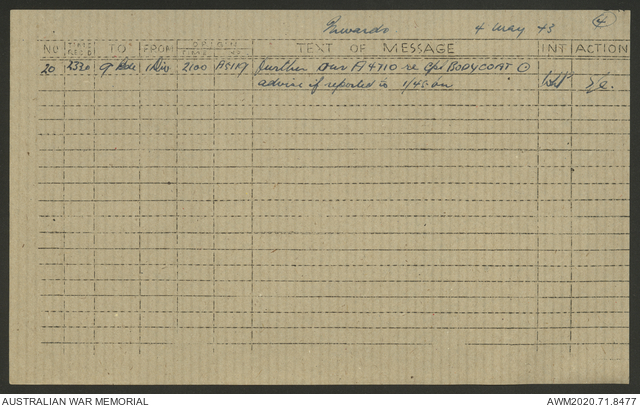 4 May 43 4
NO TIME REC'D TO FROM ORIGIN TIME NO. TEXT OF MESSAGE INT ACTION
20 2320 9 Bde 1 Div 2100 further our A4710 re Cpl BODYCOAT
advise if reported to 1/45 Bn
AUSTRALIAN WAR MEMORIAL AWM2020.71.8477